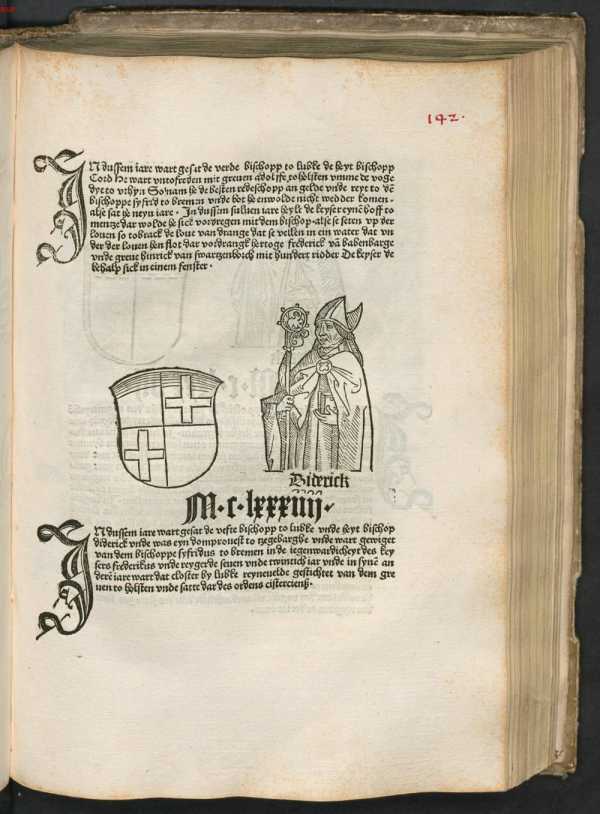 142.
IN dussem iare wart gesat de verde bischopp to lubke de heyt bischopp
Cord He wart vntofreden mit greuen adolffe to holsten vmme de voge
dye to vthyn So nam he de besten redeschopp an gelde vnde reyt to dē
bischoppe syfryd to bremen vnde bot he en wolde nicht wedder komen-
alse sat he neyn iare · In dussem suluen iare heylt de keyser eynē hoff to
mentze dar wolde he sick vordregen mit dem bischop-alse se seten vp der
louen so tobrack de loue van drange dat se vellen in ein water dat vn
der der louen hen flot dar vordrangk hertoge frederick vā babenbarge
vnde greue hinrick van swartzenborch mit hundert ridder De keyser de
behalp sick in einem fenster ·
Diderick
M·c·lxxxiiij·
IN dussem iare wart gesat de vefte bischopp to lubke vnde heyt bischop
diderick vnde was eyn domprouest to tzegebarghe vnde wart gewiget
van dem bischoppe syfridus to bremen in de iegenwardicheyt des key
sers frederikus vnde regerde seuen vnde twintich iar vnde in synē an
derē iare wart dat closter by lubke reyneuelde gestichtet van dem gre
uen to holsten vnde satte dar des ordens cistercienß·